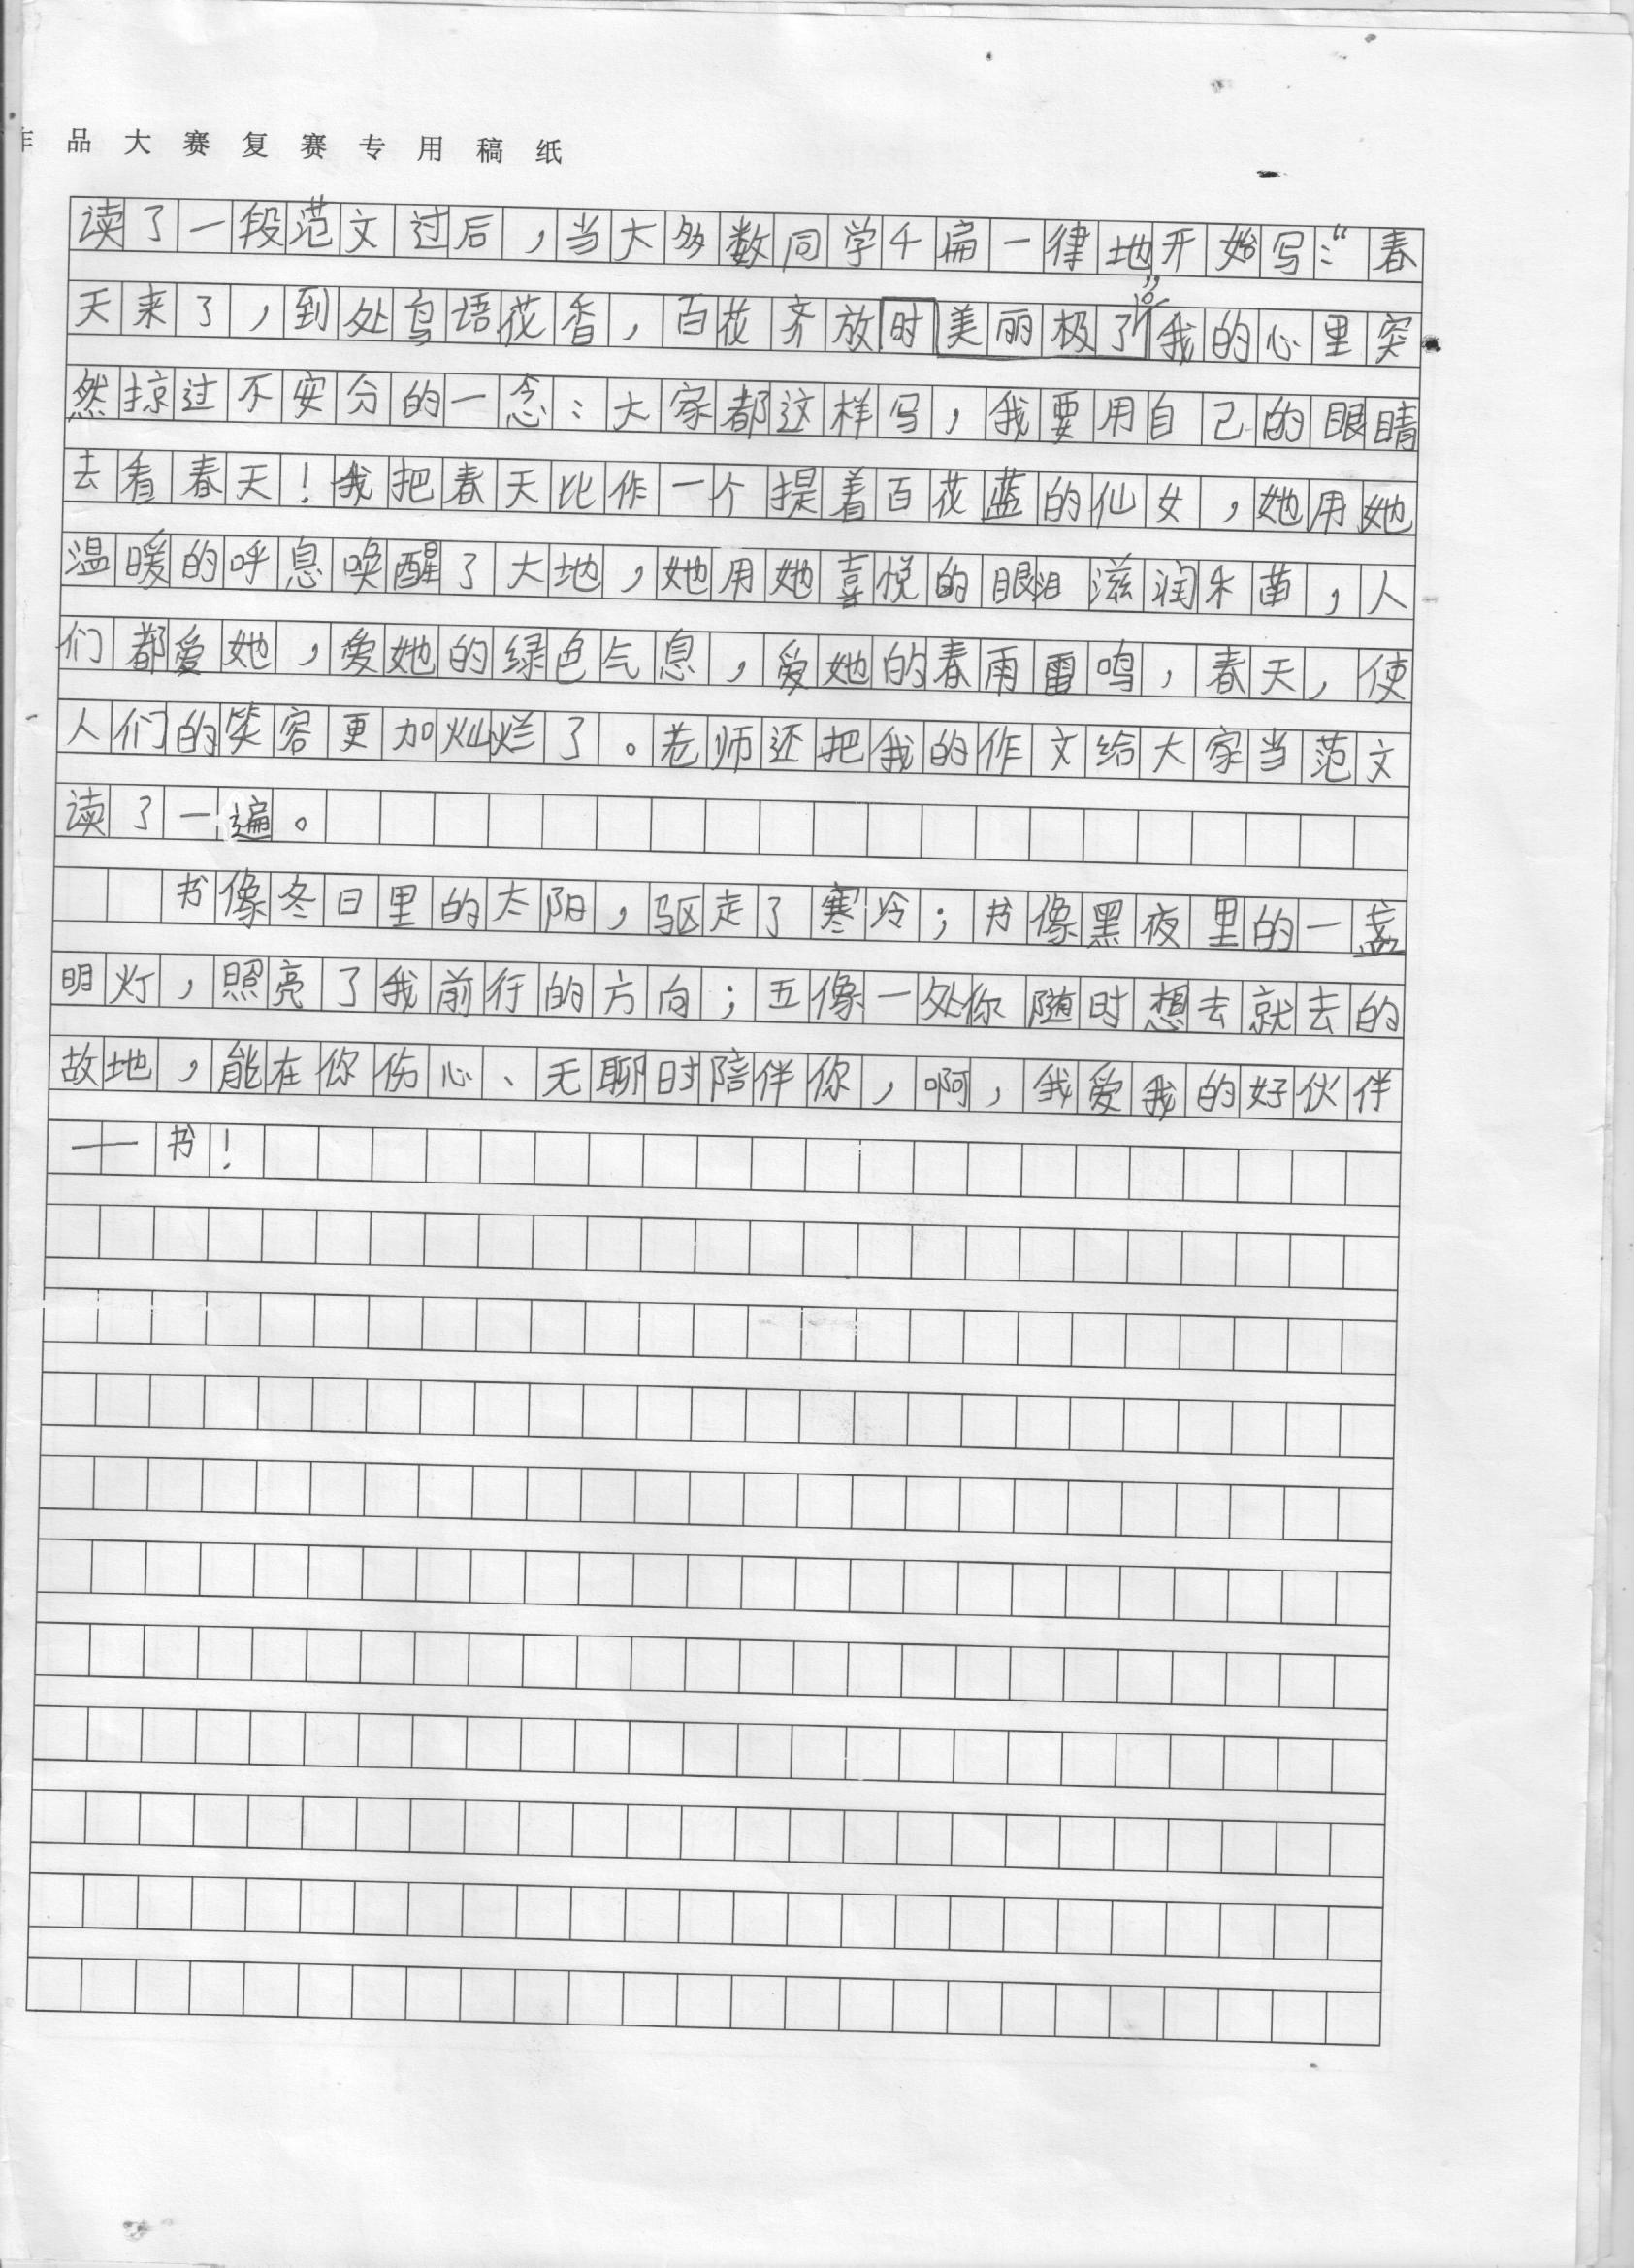 品大赛复赛专用稿纸
读了一段范文过后，当大多数同学千扁一律地开始写：“春
天来了，到处鸟语花香，百花齐放时美丽极了。”我的心里突
然掠过不安分的一念：大家都这样写，我要用自己的眼睛
去看春天！我把春天比作一个提着百花蓝的仙女，她用她
温暖的呼息唤醒了大地，她用她喜悦的眼泪滋润禾苗，人
们都爱她，爱她的绿色气息，爱她的春雨雷鸣，春天，使
人们的笑容更加灿烂了。老师还把我的作文给大家当范文
读了一遍。
书像冬日里的太阳，驱走了寒冷；书像黑夜里的一盏
明灯，照亮了我前行的方向；五像一处你随时想去就去的
故地，能在你伤心、无聊时陪伴你，啊，我爱我的好伙伴
——书！